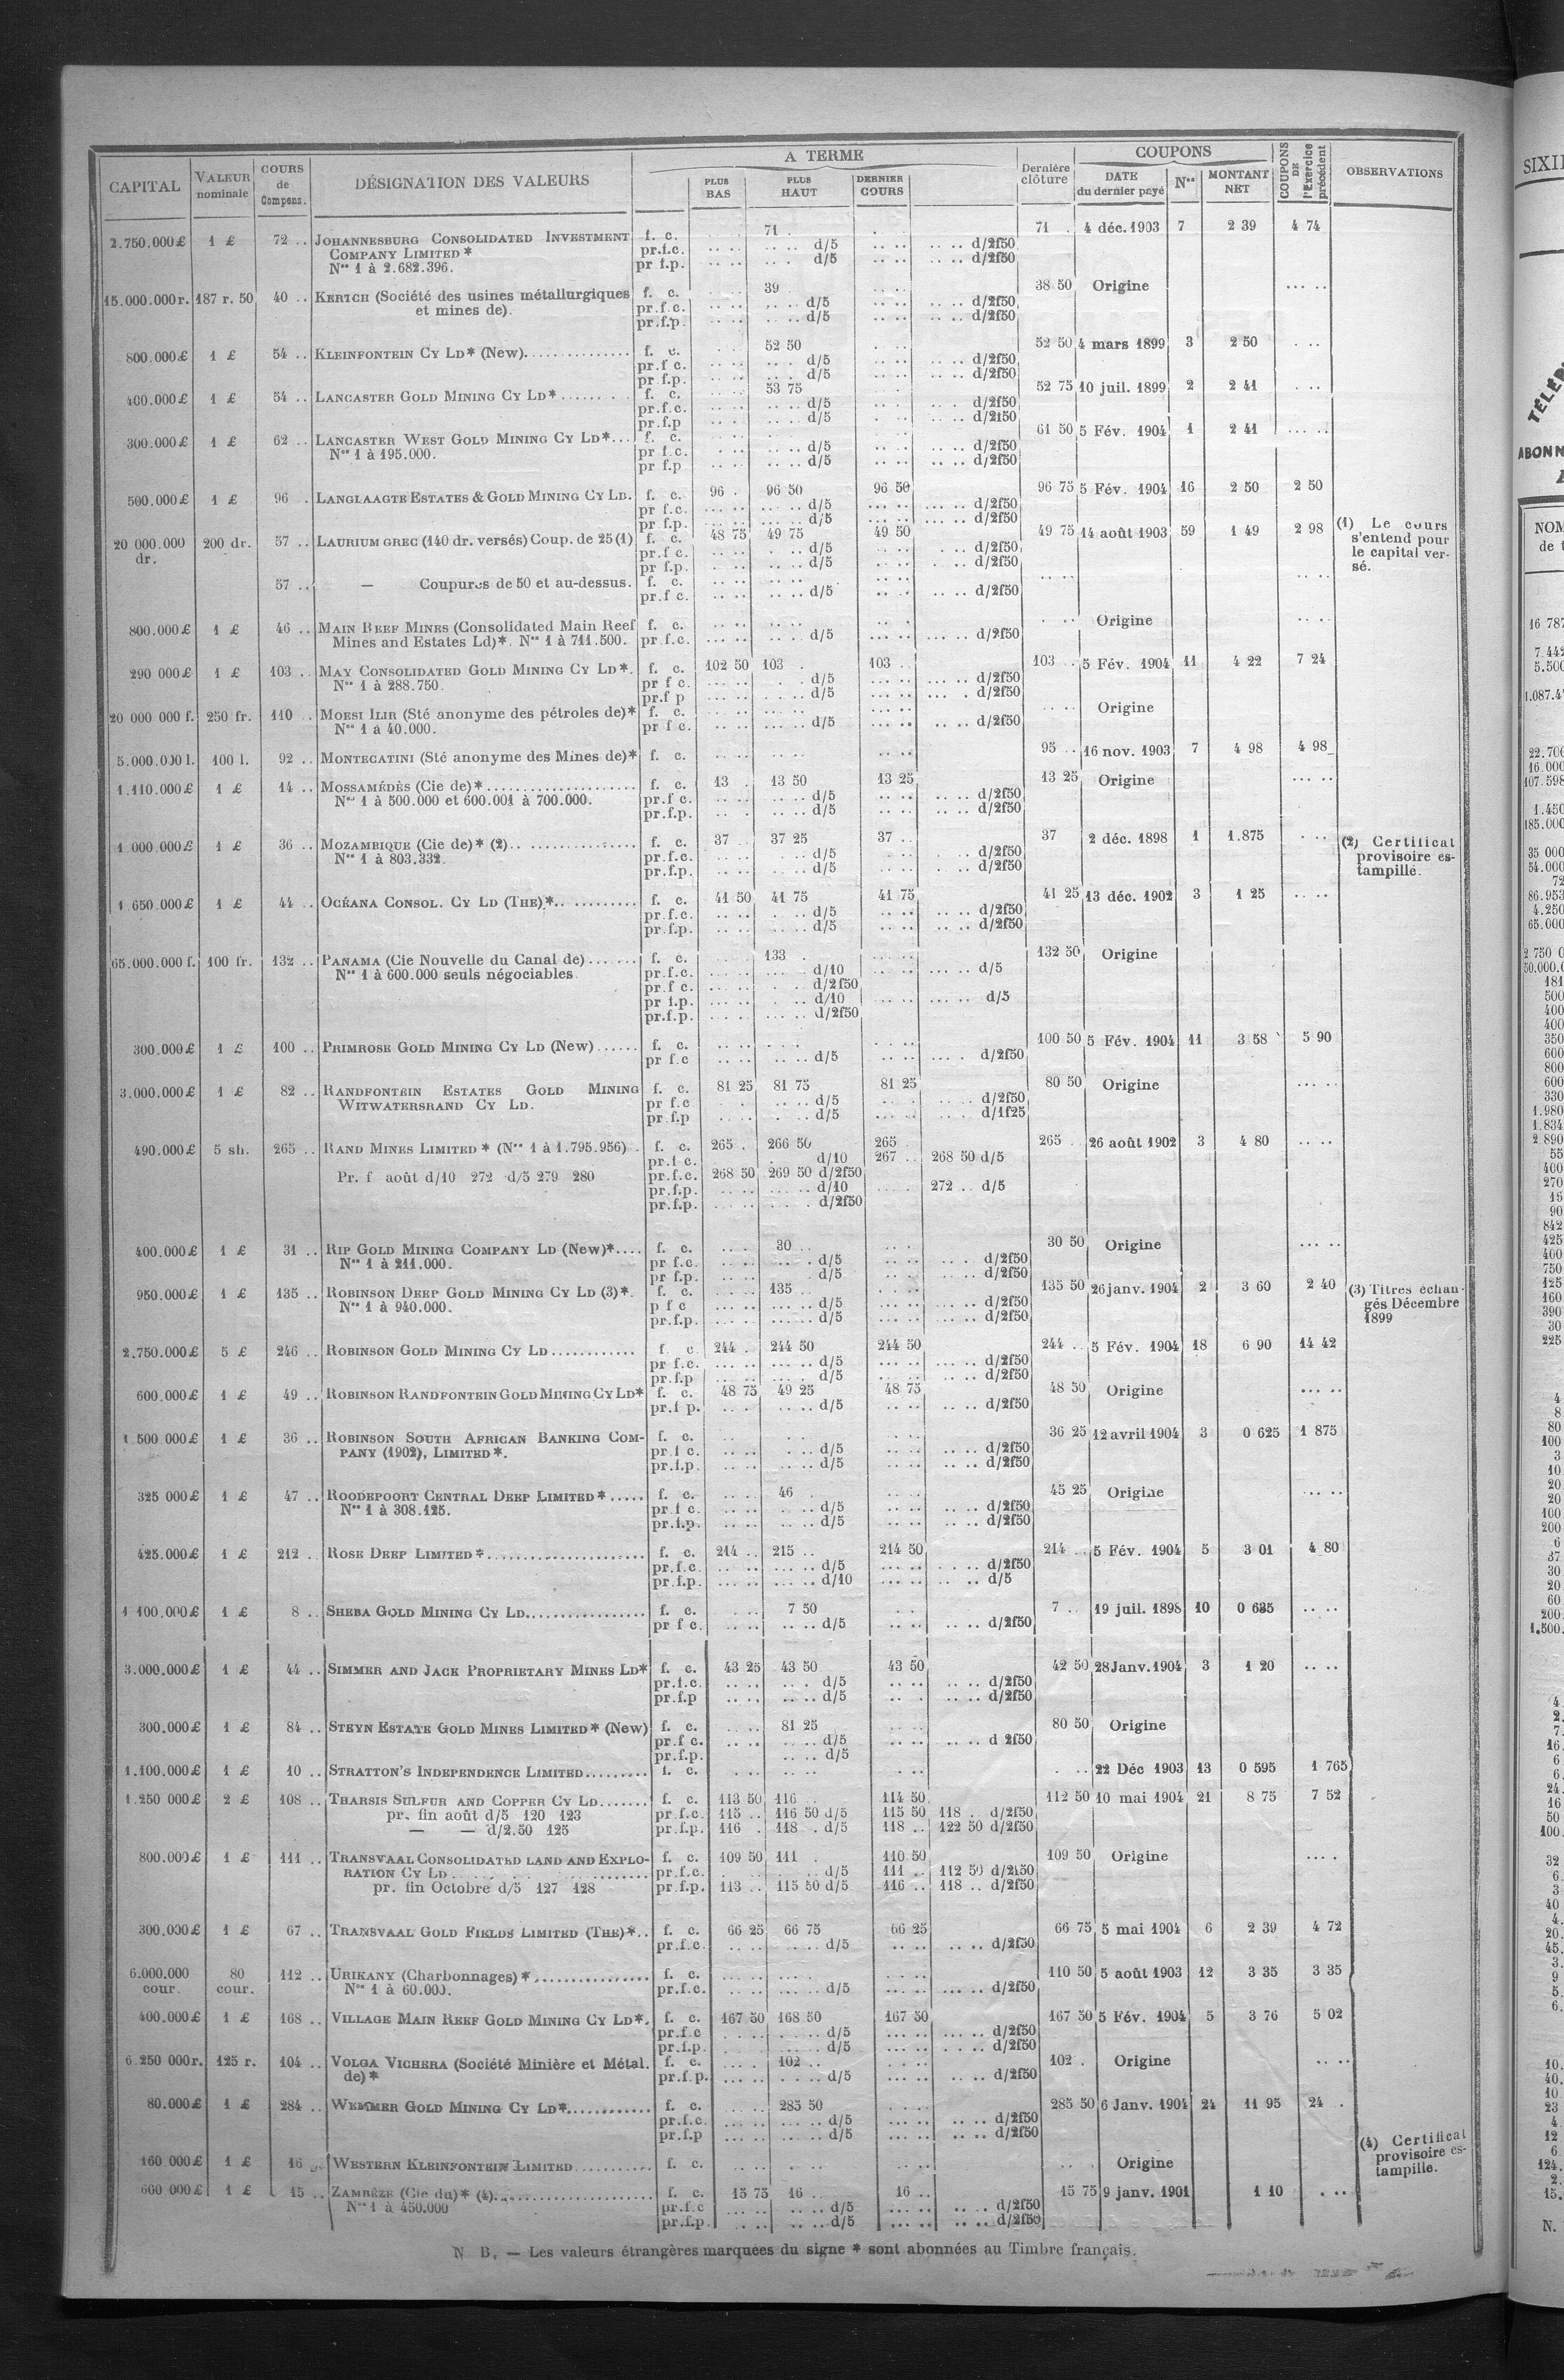 CAPITAL | VALEUR nominale | COURS de Compens. | DÉSIGNATION DES VALEURS | A TERME | PLUS BAS | PLUS HAUT | DERNIER COURS | Dernière clôture | COUPONS | DATE du dernier payé | Nos | MONTANT NET | COUPONS DE l'Exercice précédent | OBSERVATIONS
2.750.000£ 1 £ 72 .. JOHANNESBURG CONSOLIDATED INVESTMENT f. c. 71 . 71 . 4 déc. 1903 7 2 39 4 74
COMPANY LIMITED * pr.f.c. d/5 d/2f50
Nos 1 à 2.682.396. pr f.p. d/5 d/2f50
15.000.000r. 187 r. 50 40 .. KERTCH (Société des usines métallurgiques f. c. 39 . 38 50 Origine
et mines de). pr.f.c. d/5 d/2f50
pr.f.p. d/5 d/2f50
800.000£ 1 £ 54 .. KLEINFONTEIN CY LD* (New) f. c. 52 50 52 50 4 mars 1899 3 2 50
pr.f c. d/5 d/2f50
pr f.p. d/5 d/2f50
400.000£ 1 £ 54 .. LANCASTER GOLD MINING CY LD* f. c. 53 75 52 75 10 juil. 1899 2 2 41
pr.f.c. d/5 d/2f50
pr.f.p d/5 d/2f50
300.000£ 1 £ 62 .. LANCASTER WEST GOLD MINING CY LD* f. c. 61 50 5 Fév. 1904 1 2 41
Nos 1 à 195.000. pr f.c. d/5 d/2f50
pr f.p d/5 d/2f50
500.000£ 1 £ 96 . LANGLAAGTE ESTATES & GOLD MINING CY LD. f. c. 96 . 96 50 96 50 96 75 5 Fév. 1904 16 2 50 2 50
pr f.c. d/5 d/2f50
pr f.p. d/5 d/2f50
20 000.000 dr. 200 dr. 57 .. LAURIUM GREC (140 dr. versés) Coup. de 25 (1) f. c. 48 75 49 75 49 50 49 75 14 août 1903 59 1 49 2 98
pr.f c. d/5 d/2f50
pr f.p. d/5 d/2f50
(1) Le cours
s'entend pour
le capital ver-
sé.
57 .. — Coupures de 50 et au-dessus. f. c.
pr.f c. d/5 d/2f50
800.000£ 1 £ 46 .. MAIN REEF MINES (Consolidated Main Reef f. c. Origine
Mines and Estates Ld)*. Nos 1 à 711.500. pr.f.c. d/5 d/2f50
290 000£ 1 £ 103 .. MAY CONSOLIDATED GOLD MINING CY LD*. f. c. 102 50 103 . 103 .. 103 .. 5 Fév. 1904 11 4 22 7 24
Nos 1 à 288.750. pr f c. d/5 d/2f50
pr.f p d/5 d/2f50
20 000 000 f. 250 fr. 110 .. MOESI ILIR (Sté anonyme des pétroles de)* f. c. Origine
Nos 1 à 40.000. pr f c. d/5 d/2f50
5.000.000 l. 100 l. 92 .. MONTECATINI (Sté anonyme des Mines de)* f. c. 95 .. 16 nov. 1903 7 4 98 4 98
1.110.000£ 1 £ 14 .. MOSSAMÉDÈS (Cie de)* f. c. 13 . 13 50 13 25 13 25 Origine
Nos 1 à 500.000 et 600.001 à 700.000. pr.f c. d/5 d/2f50
pr.f.p. d/5 d/2f50
1.000.000£ 1 £ 36 .. MOZAMBIQUE (Cie de)* (2) f. c. 37 .. 37 25 37 .. 37 2 déc. 1898 1 1.875
Nos 1 à 803.332. pr.f.c. d/5 d/2f50
pr.f.p. d/5 d/2f50
(2) Certificat
provisoire es-
tampillé.
1 650.000£ 1 £ 44 .. OCÉANA CONSOL. CY LD (THE)* f. c. 41 50 41 75 41 75 41 25 13 déc. 1902 3 1 25
pr.f.c. d/5 d/2f50
pr.f.p. d/5 d/2f50
65.000.000 f. 100 fr. 132 .. PANAMA (Cie Nouvelle du Canal de) f. c. 133 . 132 50 Origine
Nos 1 à 600.000 seuls négociables. pr.f.c. d/10 d/5
pr.f c. d/2f50
pr f.p. d/10 d/5
pr.f.p. d/2f50
300.000£ 1 £ 100 .. PRIMROSE GOLD MINING CY LD (New) f. c. 100 50 5 Fév. 1904 11 3 58 5 90
pr f.c d/5 d/2f50
3.000.000£ 1 £ 82 .. RANDFONTEIN ESTATES GOLD MINING f. c. 81 25 81 75 81 25 80 50 Origine
WITWATERSRAND CY LD. pr f.c d/5 d/2f50
pr.f.p d/5 d/1f25
490.000£ 5 sh. 265 .. RAND MINES LIMITED * (Nos 1 à 1.795.956) . f. c. 265 . 266 50 265 265 . 26 août 1902 3 4 80
pr.f c. d/10 267 .. 268 50 d/5
Pr. f août d/10 272 d/5 279 280 pr.f.c. 268 50 269 50 d/2f50
pr.f.p. d/10 272 .. d/5
pr.f.p. d/2f50
400.000£ 1 £ 31 .. RIP GOLD MINING COMPANY LD (New)* f. c. 30 .. 30 50 Origine
Nos 1 à 211.000. pr f.c. d/5 d/2f50
pr f.p. d/5 d/2f50
950.000£ 1 £ 135 .. ROBINSON DEEP GOLD MINING CY LD (3)*. f. c. 135 .. 135 50 26 janv. 1904 2 3 60 2 40
Nos 1 à 940.000. p f c d/5 d/2f50
pr.f.p. d/5 d/2f50
(3) Titres échan-
gés Décembre
1899
2,750.000£ 5 £ 246 .. ROBINSON GOLD MINING CY LD f. c. 244 . 244 50 244 50 244 .. 5 Fév. 1904 18 6 90 14 42
pr f.c. d/5 d/2f50
pr.f.p d/5 d/2f50
600.000£ 1 £ 49 .. ROBINSON RANDFONTEIN GOLD MINING CY LD* f. c. 48 75 49 25 48 75 48 50 Origine
pr.f p. d/5 d/2f50
1.500 000£ 1 £ 36 .. ROBINSON SOUTH AFRICAN BANKING COM- f. c. 36 25 12 avril 1904 3 0 625 1 875
PANY (1902), LIMITED *. pr.f c. d/5 d/2f50
pr.f.p. d/5 d/2f50
325 000£ 1 £ 47 .. ROODEPOORT CENTRAL DEEP LIMITED * f. c. 46 . 45 25 Origine
Nos 1 à 308.125. pr.f c. d/5 d/2f50
pr.f.p. d/5 d/2f50
425.000£ 1 £ 212 .. ROSE DEEP LIMITED * f. c. 214 .. 215 .. 214 50 214 .. 5 Fév. 1904 5 3 01 4 80
pr.f.c. d/5 d/2f50
pr.f.p. d/10 d/5
1 100.000£ 1 £ 8 .. SHEBA GOLD MINING CY LD f. c. 7 50 7 .. 19 juil. 1898 10 0 635
pr f c. d/5 d/2f50
3.000.000£ 1 £ 44 .. SIMMER AND JACK PROPRIETARY MINES LD* f. c. 43 25 43 50 43 50 42 50 28 Janv. 1904 3 1 20
pr.f.c. d/5 d/2f50
pr.f.p d/5 d/2f50
300.000£ 1 £ 84 .. STEYN ESTATE GOLD MINES LIMITED * (New) f. c. 81 25 80 50 Origine
pr.f c. d/5 d 2f50
pr.f.p. d/5
1.100.000£ 1 £ 10 .. STRATTON'S INDEPENDENCE LIMITED f. c. 22 Déc 1903 13 0 595 1 765
1.250 000£ 2 £ 108 .. THARSIS SULFUR AND COPPER CY LD f. c. 113 50 116 .. 114 50 112 50 10 mai 1904 21 8 75 7 52
pr. fin août d/5 120 123 pr.f.c. 115 .. 116 50 d/5 115 50 118 .. d/2f50
— — d/2.50 125 pr.f.p. 116 . 118 . d/5 118 .. 122 50 d/2f50
800.000£ 1 £ 111 .. TRANSVAAL CONSOLIDATED LAND AND EXPLO- f. c. 109 50 111 . 110 50 109 50 Origine
RATION CY LD pr.f.c. d/5 111 .. 112 50 d/2f50
pr. fin Octobre d/5 127 128 pr.f.p. 113 .. 115 50 d/5 116 .. 118 .. d/2f50
300.000£ 1 £ 67 .. TRANSVAAL GOLD FIELDS LIMITED (THE)* f. c. 66 25 66 75 66 25 66 75 5 mai 1904 6 2 39 4 72
pr.f.c. d/5 d/2f50
6.000.000 cour. 80 cour. 112 .. URIKANY (Charbonnages)* f. c. 110 50 5 août 1903 12 3 35 3 35
Nos 1 à 60.000. pr.f.c. d/5 d/2f50
400.000£ 1 £ 168 .. VILLAGE MAIN REEF GOLD MINING CY LD*. f. c. 167 50 168 50 167 50 167 50 5 Fév. 1904 5 3 76 5 02
pr.f.c d/5 d/2f50
pr.f.p. d/5 d/2f50
6.250 000r. 125 r. 104 .. VOLGA VICHERA (Société Minière et Métal. f. c. 102 .. 102 . Origine
de)* pr.f.p. d/5 d/2f50
80.000£ 1 £ 284 .. WEMMER GOLD MINING CY LD* f. c. 285 50 285 50 6 Janv. 1904 24 11 95 24 .
pr.f.c. d/5 d/2f50
pr.f.p d/5 d/2f50
(4) Certificat
provisoire es-
tampille.
160 000£ 1 £ 16 WESTERN KLEINFONTEIN LIMITED f. c. Origine
600 000£ 1 £ 15 .. ZAMBÈZE (Cie du)* (4) f. c. 15 75 16 .. 16 .. 15 75 9 janv. 1901 1 10
Nos 1 à 450.000 pr.f.c d/5 d/2f50
pr.f.p. d/5 d/2f50
N B. — Les valeurs étrangères marquées du signe * sont abonnées au Timbre français.